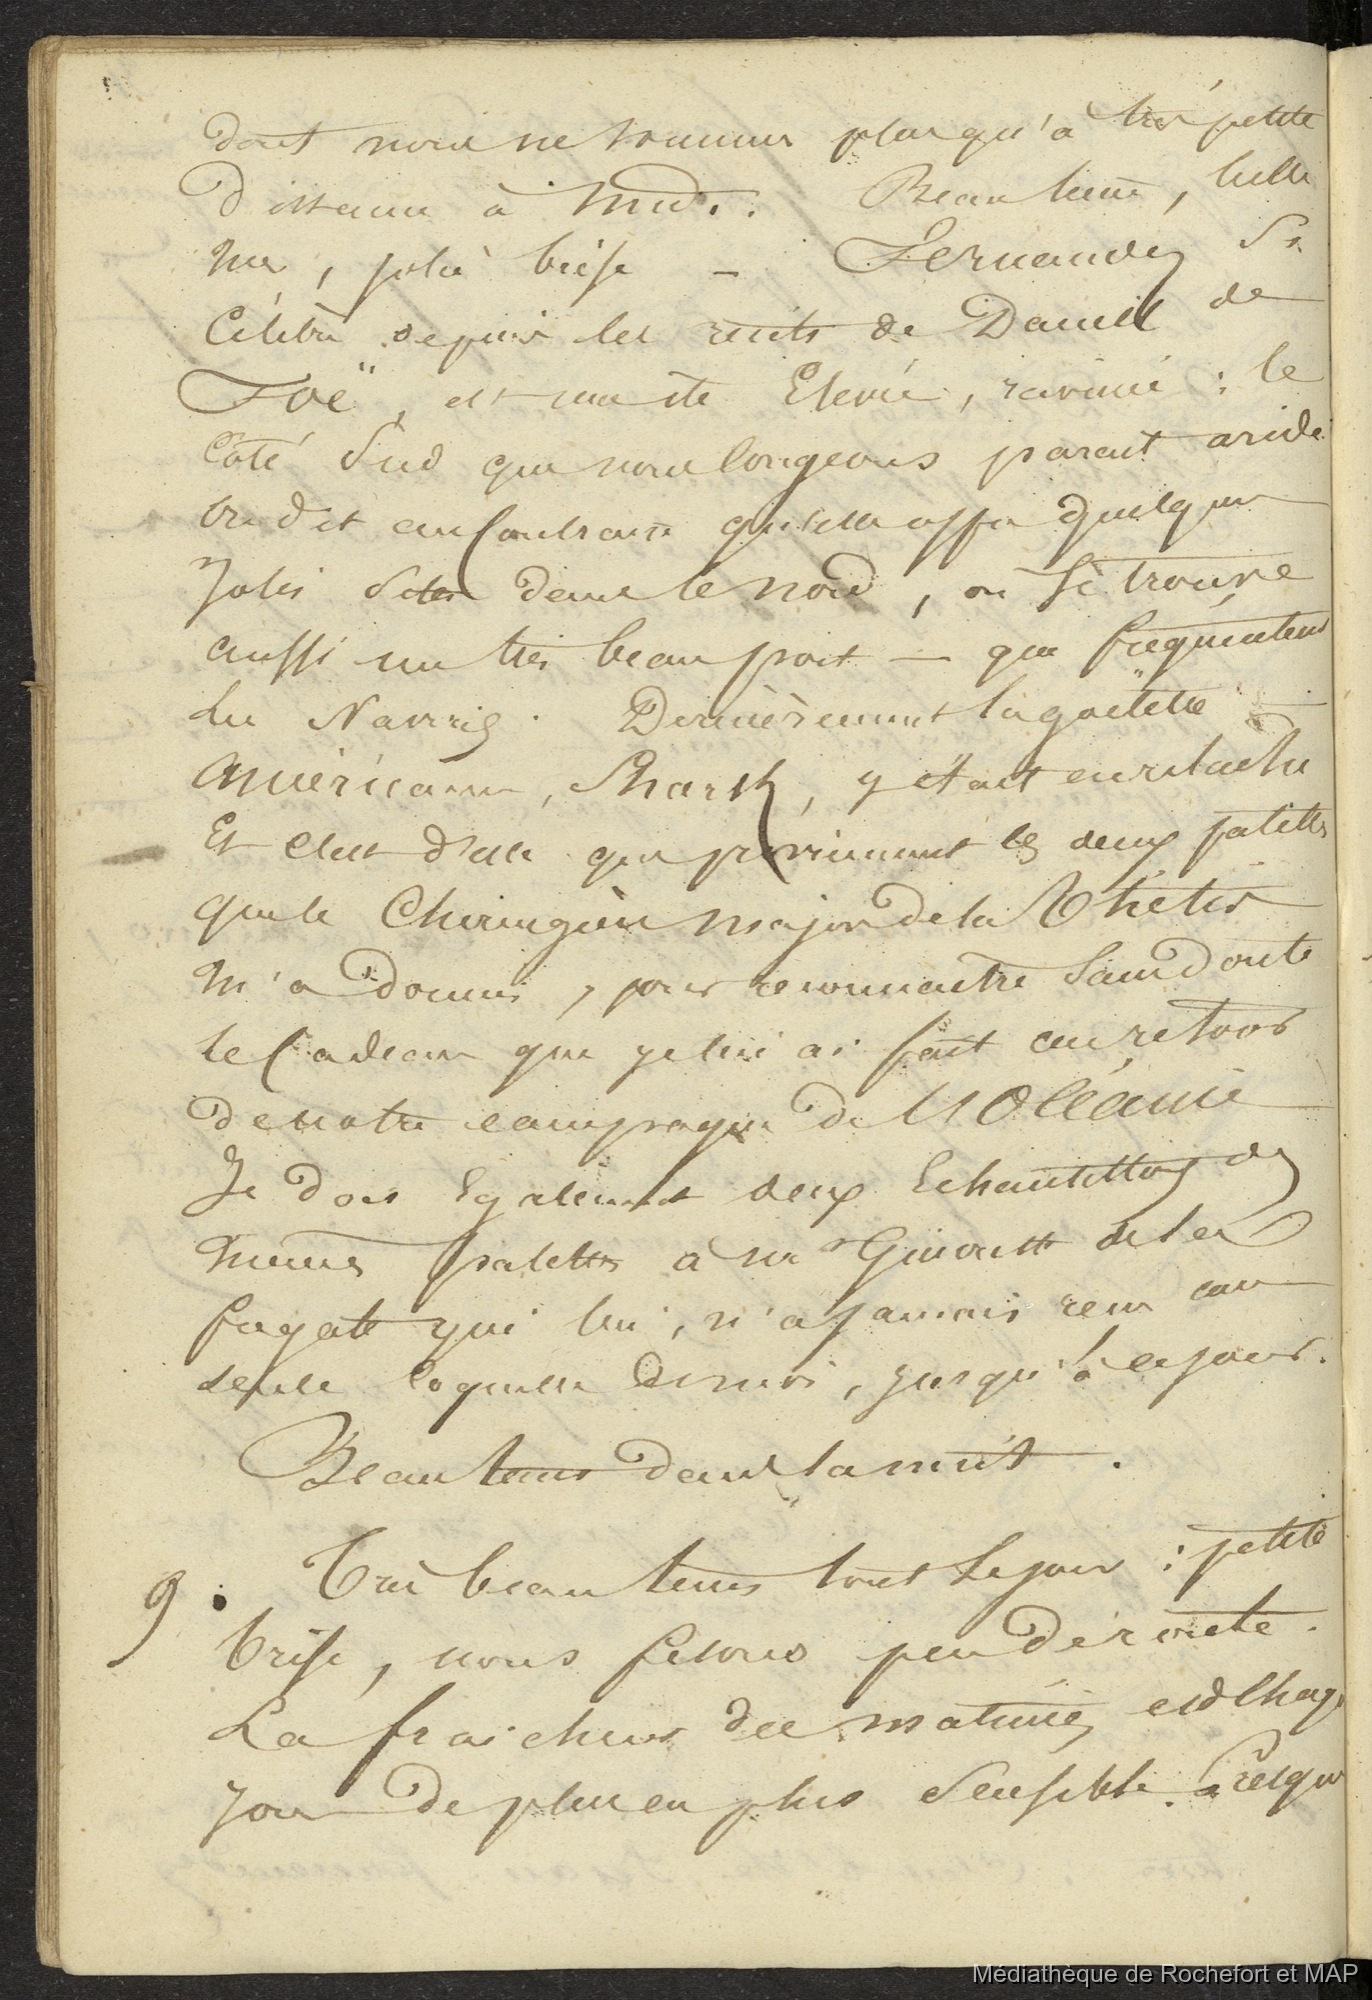 dont nous ne sommes plus qu'à très petite
distance à midi. Beau tems, belle
mer, jolie brise - Fernandez si
célèbre depuis les récits de Daniel de
Foë, est une île élevée, ravinée : le
côté Sud que nous longeons parait aride
on dit au contraire qu'elle offre quelques
jolis sites dans le nord, où se trouve
aussi un très beau port — que fréquentent
les Navires. Dernièrement la goëlette
américaine, Shark, y était en relache
Et c'est d'elle que proviennent les deux palettes
que le Chirurgien major de la Thétis
m'a donnés, pour reconnaitre sans doute
le Cadeau que je lui ai fait au retour
de notre campagne de l'Océanie
Je dois également deux Echantillons des
mêmes palettes à Mr de la
frégate qui lui, n'a jamais reçu une
seule coquille de moi, jusqu'à ce jour.
Beau tems dans la nuit.
9. Très beau tems tout le jour : petite
brise, nous fesons peu de route.
La fraicheur des matinées est chaque
jour de plus en plus sensible. Presque
Médiathèque de Rochefort et MAP